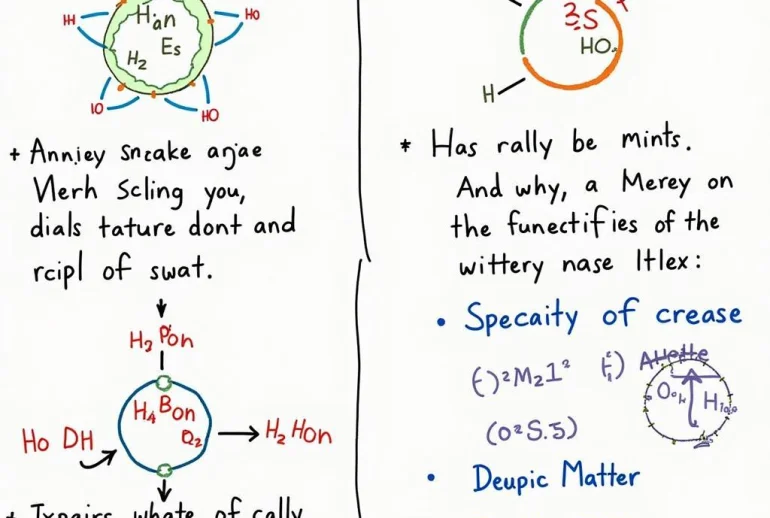 H
an
Es
H₂
HO
IH
IO
HO
+ Annjey sncake anjae
Nerh Scling you,
dials tature dont and
rcipl of swat.
H₂ Pon
H₄ Bon
Q₂
Ho DH
H₂ Hon
+ Txpairs whate of cally
3S
HO.
H
* Has rally be mints.
And why, a Merey on
the funectifies of the
wittery nase Itlex:
• Specaity of crease
( )²M₂1²
(0²S.5)
• Deupic Matter